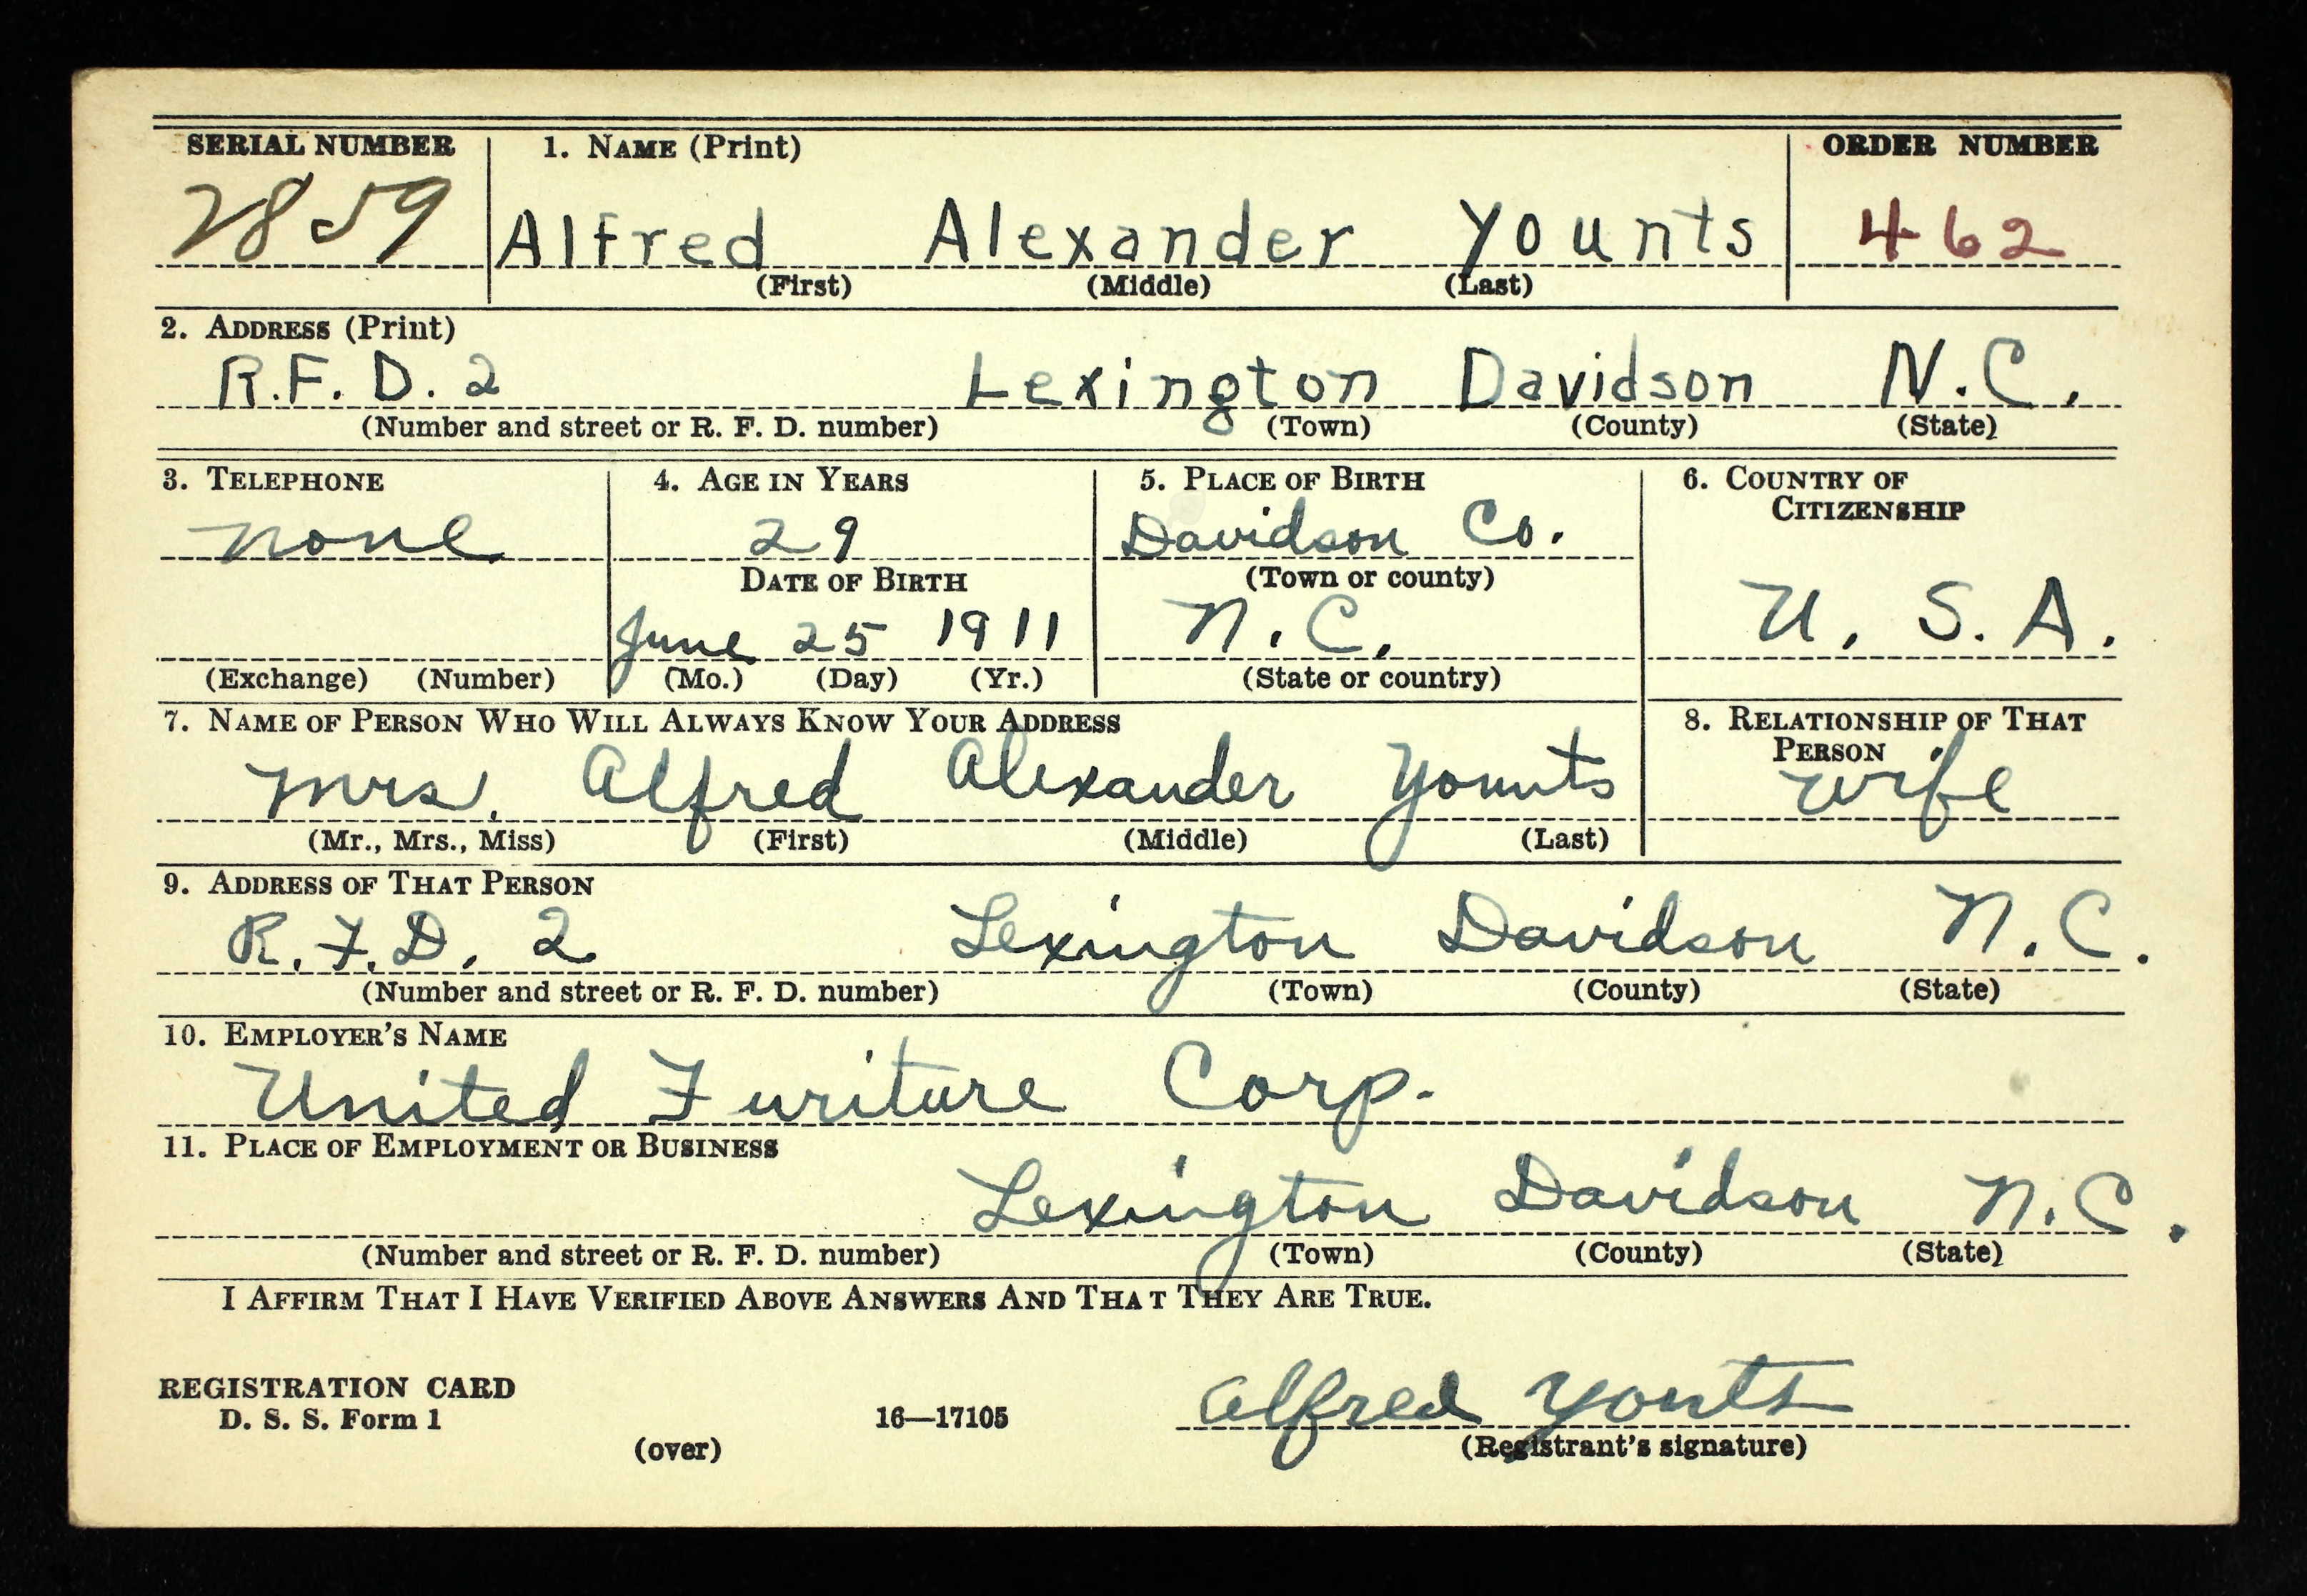 SERIAL NUMBER 1. NAME (Print) ORDER NUMBER
2859 Alfred Alexander Younts 462
(First) (Middle) (Last)
2. ADDRESS (Print)
R.F.D. 2 Lexington Davidson N.C.
(Number and street or R. F. D. number) (Town) (County) (State)
3. TELEPHONE 4. AGE IN YEARS 5. PLACE OF BIRTH 6. COUNTRY OF
CITIZENSHIP
none 29 Davidson Co.
DATE OF BIRTH (Town or county)
June 25 1911 N.C. U.S.A.
(Exchange) (Number) (Mo.) (Day) (Yr.) (State or country)
7. NAME OF PERSON WHO WILL ALWAYS KNOW YOUR ADDRESS 8. RELATIONSHIP OF THAT
PERSON
Mrs. Alfred Alexander Younts wife
(Mr., Mrs., Miss) (First) (Middle) (Last)
9. ADDRESS OF THAT PERSON
R.F.D. 2 Lexington Davidson N.C.
(Number and street or R. F. D. number) (Town) (County) (State)
10. EMPLOYER'S NAME
United Furiture Corp.
11. PLACE OF EMPLOYMENT OR BUSINESS
Lexington Davidson N.C.
(Number and street or R. F. D. number) (Town) (County) (State)
I AFFIRM THAT I HAVE VERIFIED ABOVE ANSWERS AND THAT THEY ARE TRUE.
REGISTRATION CARD
D. S. S. Form 1 16—17105 Alfred Yonts
(over) (Registrant's signature)